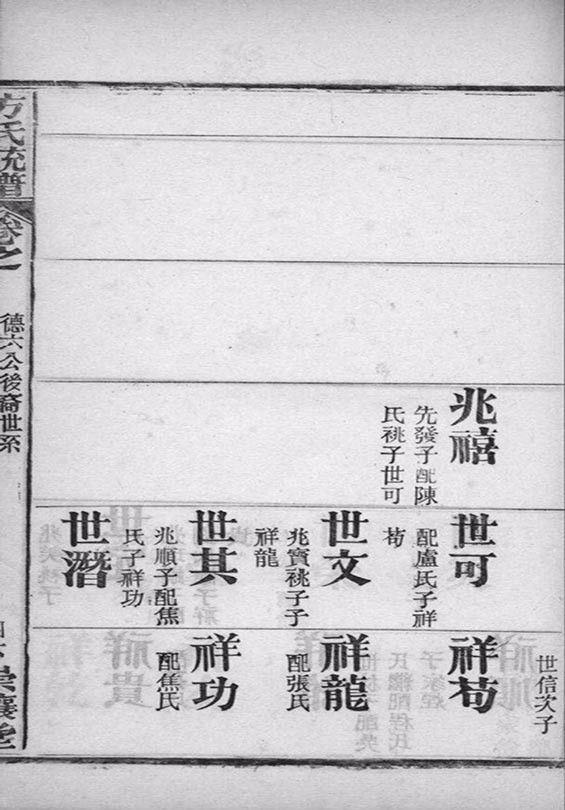 兆禧
先發子配陳
氏祧子世可
世可
配盧氏子祥
苟
世文
兆寶祧子子
祥龍
世其
兆順子配焦
氏子祥功
世潛
世信次子
祥苟
祥龍
配張氏
祥功
配焦氏
方氏統譜
卷之
德六公後裔世系